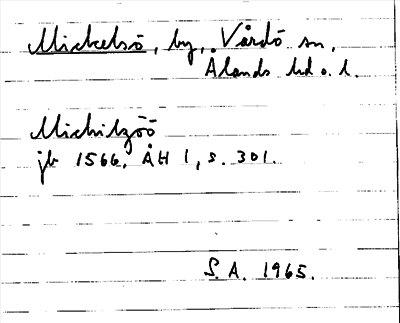 Mickelsö, by, Vårdö sn,
Ålands hd o. l.
Michilzöö
jb 1566, ÅH 1, s. 301.
S.A. 1965.